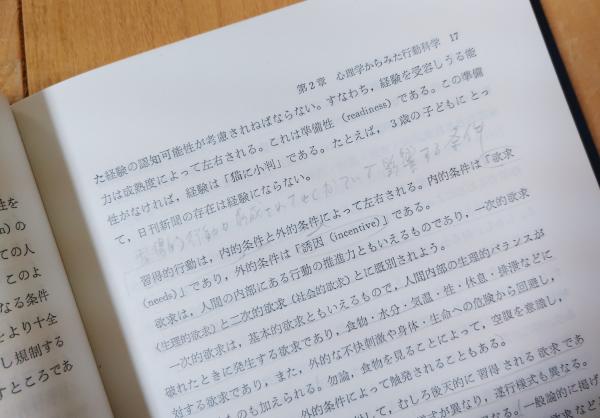 第2章 心理学からみた行動科学 17
た経験の認知可能性が考慮されねばならない。すなわち，経験を受容しうる能
力は成熟度によって左右される。これは準備性 (readiness) である。この準備
性がなければ，経験は「猫に小判」である。たとえば，3歳の子どもに とっ
て，日刊新聞の存在は経験にならない。
習得的行動は，内的条件と外的条件によって左右される。内的条件は「欲求
(needs)」であり，外的条件は「誘因 (incentive)」である。
欲求は，人間の内部にある行動の推進力ともいえるものであり，一次的欲求
(生理的欲求) と二次的欲求 (社会的欲求) とに識別されよう。
一次的欲求は，基本的欲求ともいえるもので，人間内部の生理的バランスが
破れたときに発生する欲求であり，食物・水分・気温・性・休息・排泄などに
対する欲求であり，また，外的な不快刺激や身体・生命への危険から回避し，
ものも加えられる。勿論，食物を見ることによって，空腹を意識し，
外的条件によって触発されることもある。
して，むしろ後天的に 習得 される 欲求 であ
が異なり，遂行様式も異なる。
性を
の
ての人
このよ
なる条件
をより十全
し規制する
すところであ